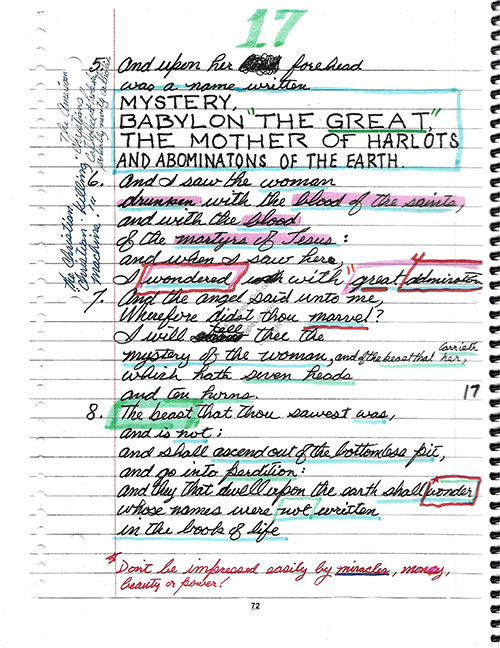 17
5. And upon her forehead
was a name written
MYSTERY,
BABYLON "THE GREAT,"
THE MOTHER OF HARLOTS
AND ABOMINATONS OF THE EARTH.
6. And I saw the woman
drunken with the blood of the saints,
and with the blood
of the martyrs of Jesus:
and when I saw here,
I wondered with "great admiration
7. And the angel said unto me,
Wherefore didst thou marvel?
I will tell thee the
mystery of the woman, and of the beast that carrieth her,
which hath seven heads
and ten horns.
17
8. The beast that thou sawest was,
and is not;
and shall ascend out of the bottomless pit,
and go into perdition:
and they that dwell upon the earth shall wonder
whose names were not written
in the book of life
* Don't be impressed easily by miracles, money,
beauty or power!
72
The American
the Christian
Christian-killing
machine!"